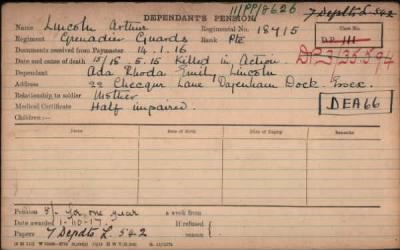 DEPENDANT'S PENSION 111PP/8626 7 Depdts L. 542
Name Lincoln Arthur Regimental No. 18415 Case No.
Regiment Grenadier Guards Rank Pte
Documents received from Paymaster 14.1.16
Date and cause of death 15/18.5.15 Killed in Action
Dependant Ada Rhoda Emily Lincoln
Address 22 Chequer Lane Dagenham Dock. Essex.
Relationship to soldier Mother
Medical Certificate Half impaired. DEA 66
Children:—
Name Date of Birth Date of Expiry
Pension 5/- for one year a week from
Date awarded 1-10-17. If refused
Papers 7 Depdts L. 542 reason